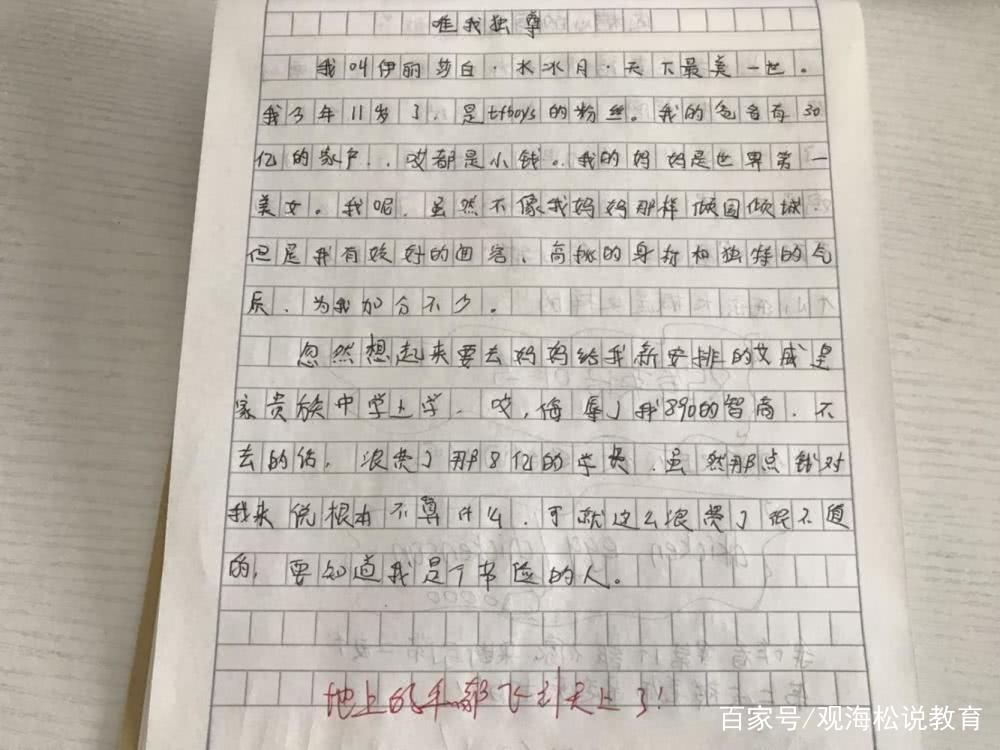 唯我独尊
我叫伊丽莎白·水冰月·天下最美一世。
我今年11岁了、是tfboys的粉丝。我的爸爸有30
亿的家产..哎都是小钱。.我的妈妈是世界第一
美女。我呢、虽然不像我妈妈那样倾国倾城.
但是我有姣好的面容、高挑的身材和独特的气
质、为我加分不少。
忽然想起来要去妈妈给我新安排的艾威皇
家贵族中学上学、哎,侮辱了我890的智商、不
去的话,浪费了那8亿的学费、虽然那点钱对
我来说根本不算什么、可就这么浪费了很不值
的,要知道我是个节俭的人。
地上的牛都飞到天上了!
百家号/观海松说教育